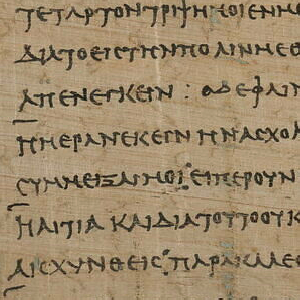 ΤΕΤΑΡΤΟΝΤΡΙΨΗΜΟΙΕΝΗ
ΔΙΑΤΟΕΙϹΤΗΝΠΟΛΙΝΜΕΘ
ΑΠΕΝΕΓΚΕΙΝ : ΟΔΕΦΑΙΝ
ΗΜΕΡΑΝΕΚΕΙΝΗΝΑϹΧΟΛ
ϹΥΜΜΕΙΞΑΙΜΟΙ:ΕΙΠΕΡΟΥΝ
ΗΑΙΤΙΑ ΚΑΙΔΙΑΤΟΥΤΟΟΥΚ
ΑΙϹΧΥΝΘΕΙϹ:ΠΑΡΑΚΑΛΕϹ